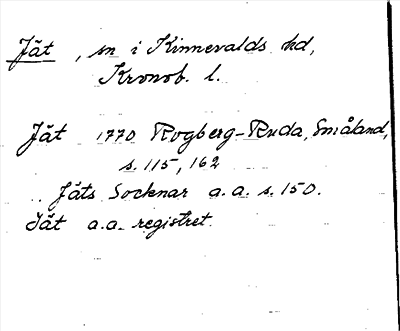 Jät, sn i Kinnevalds hd,
Kronob. l.
Jät 1770 Rogberg-Ruda, Småland,
s. 115, 162
.. Jäts Socknar a.a. s. 150.
Jät a.a. registret.